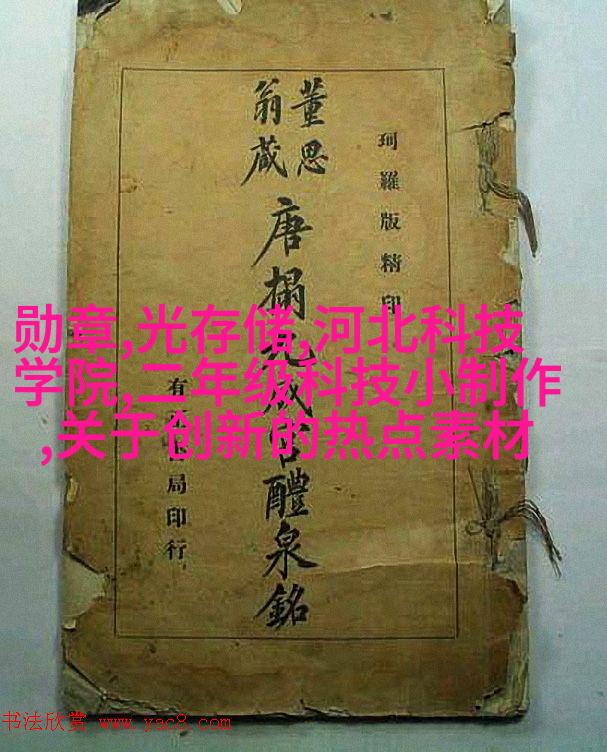 珂羅版精印
董思
翁藏
唐搨九成宮醴泉銘
有局印行
勋章,光存储,河北科技
学院,二年级科技小制作
,关于创新的热点素材
书法欣赏 www.yac8.com